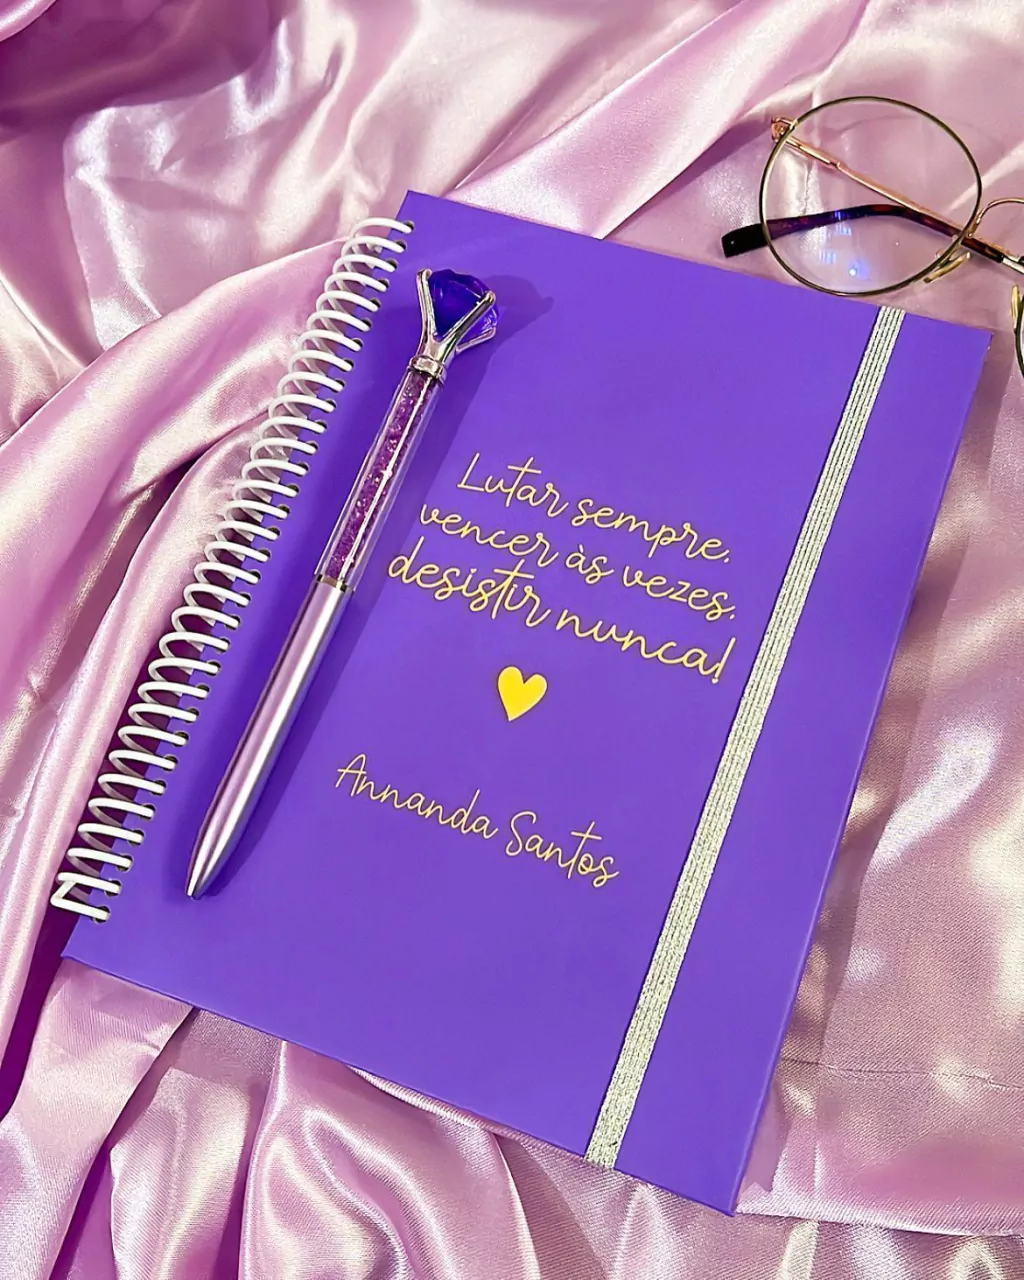 Lutar sempre,
vencer às vezes,
desistir nunca!
Annanda Santos